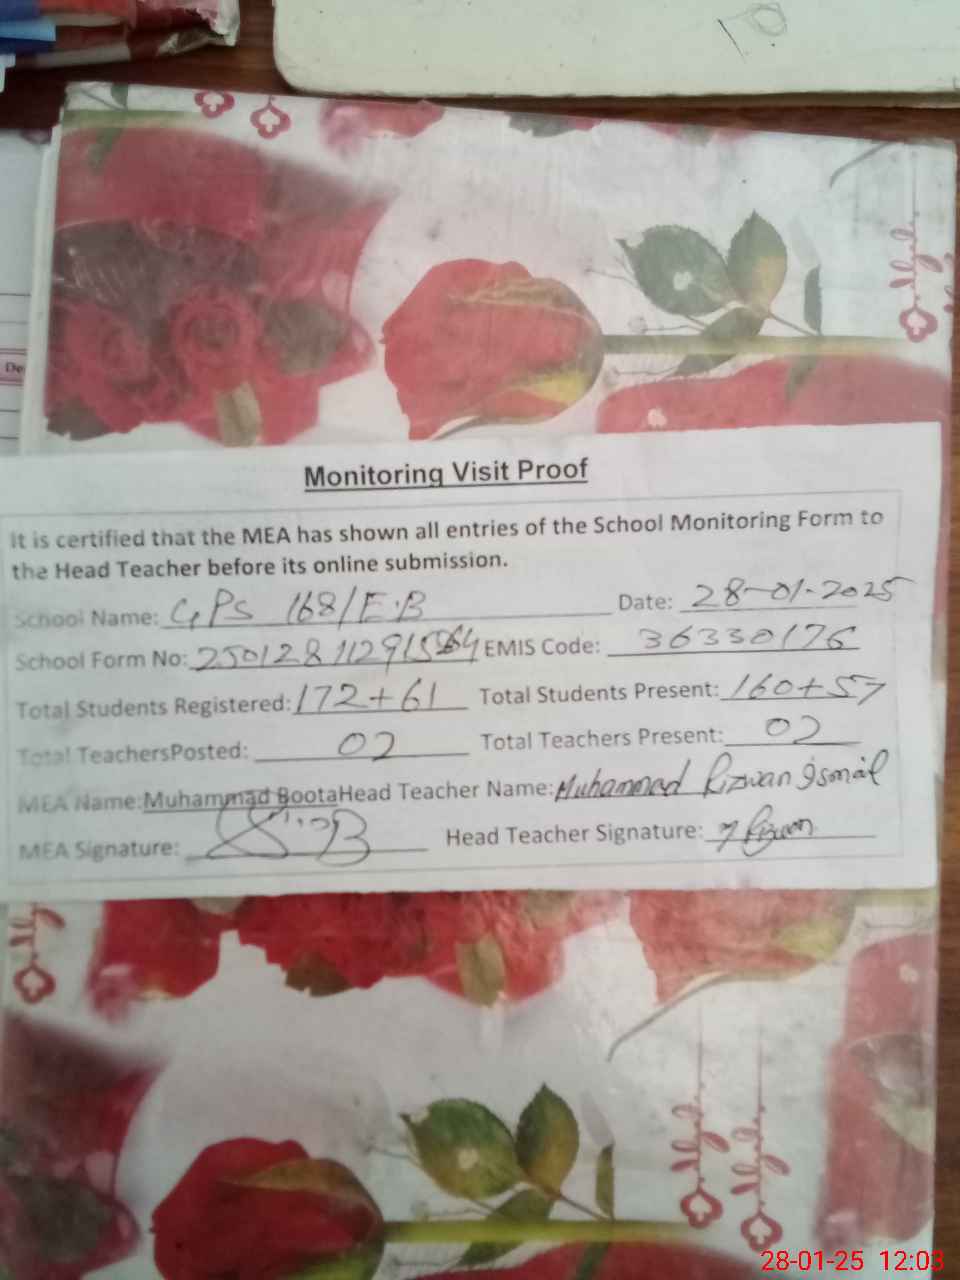 10
De
Monitoring Visit Proof
It is certified that the MEA has shown all entries of the School Monitoring Form to
the Head Teacher before its online submission.
School Name: GPS 168/E.B Date: 28-01-2025
School Form No: EMIS Code: 36330176
Total Students Registered: 172+61 Total Students Present: 160+57
Total TeachersPosted: 02 Total Teachers Present: 02
MEA Name:Muhammad BootaHead Teacher Name: Muhammad Rizwan Ismail
MEA Signature: Head Teacher Signature: Rizwan
28-01-25 12:03